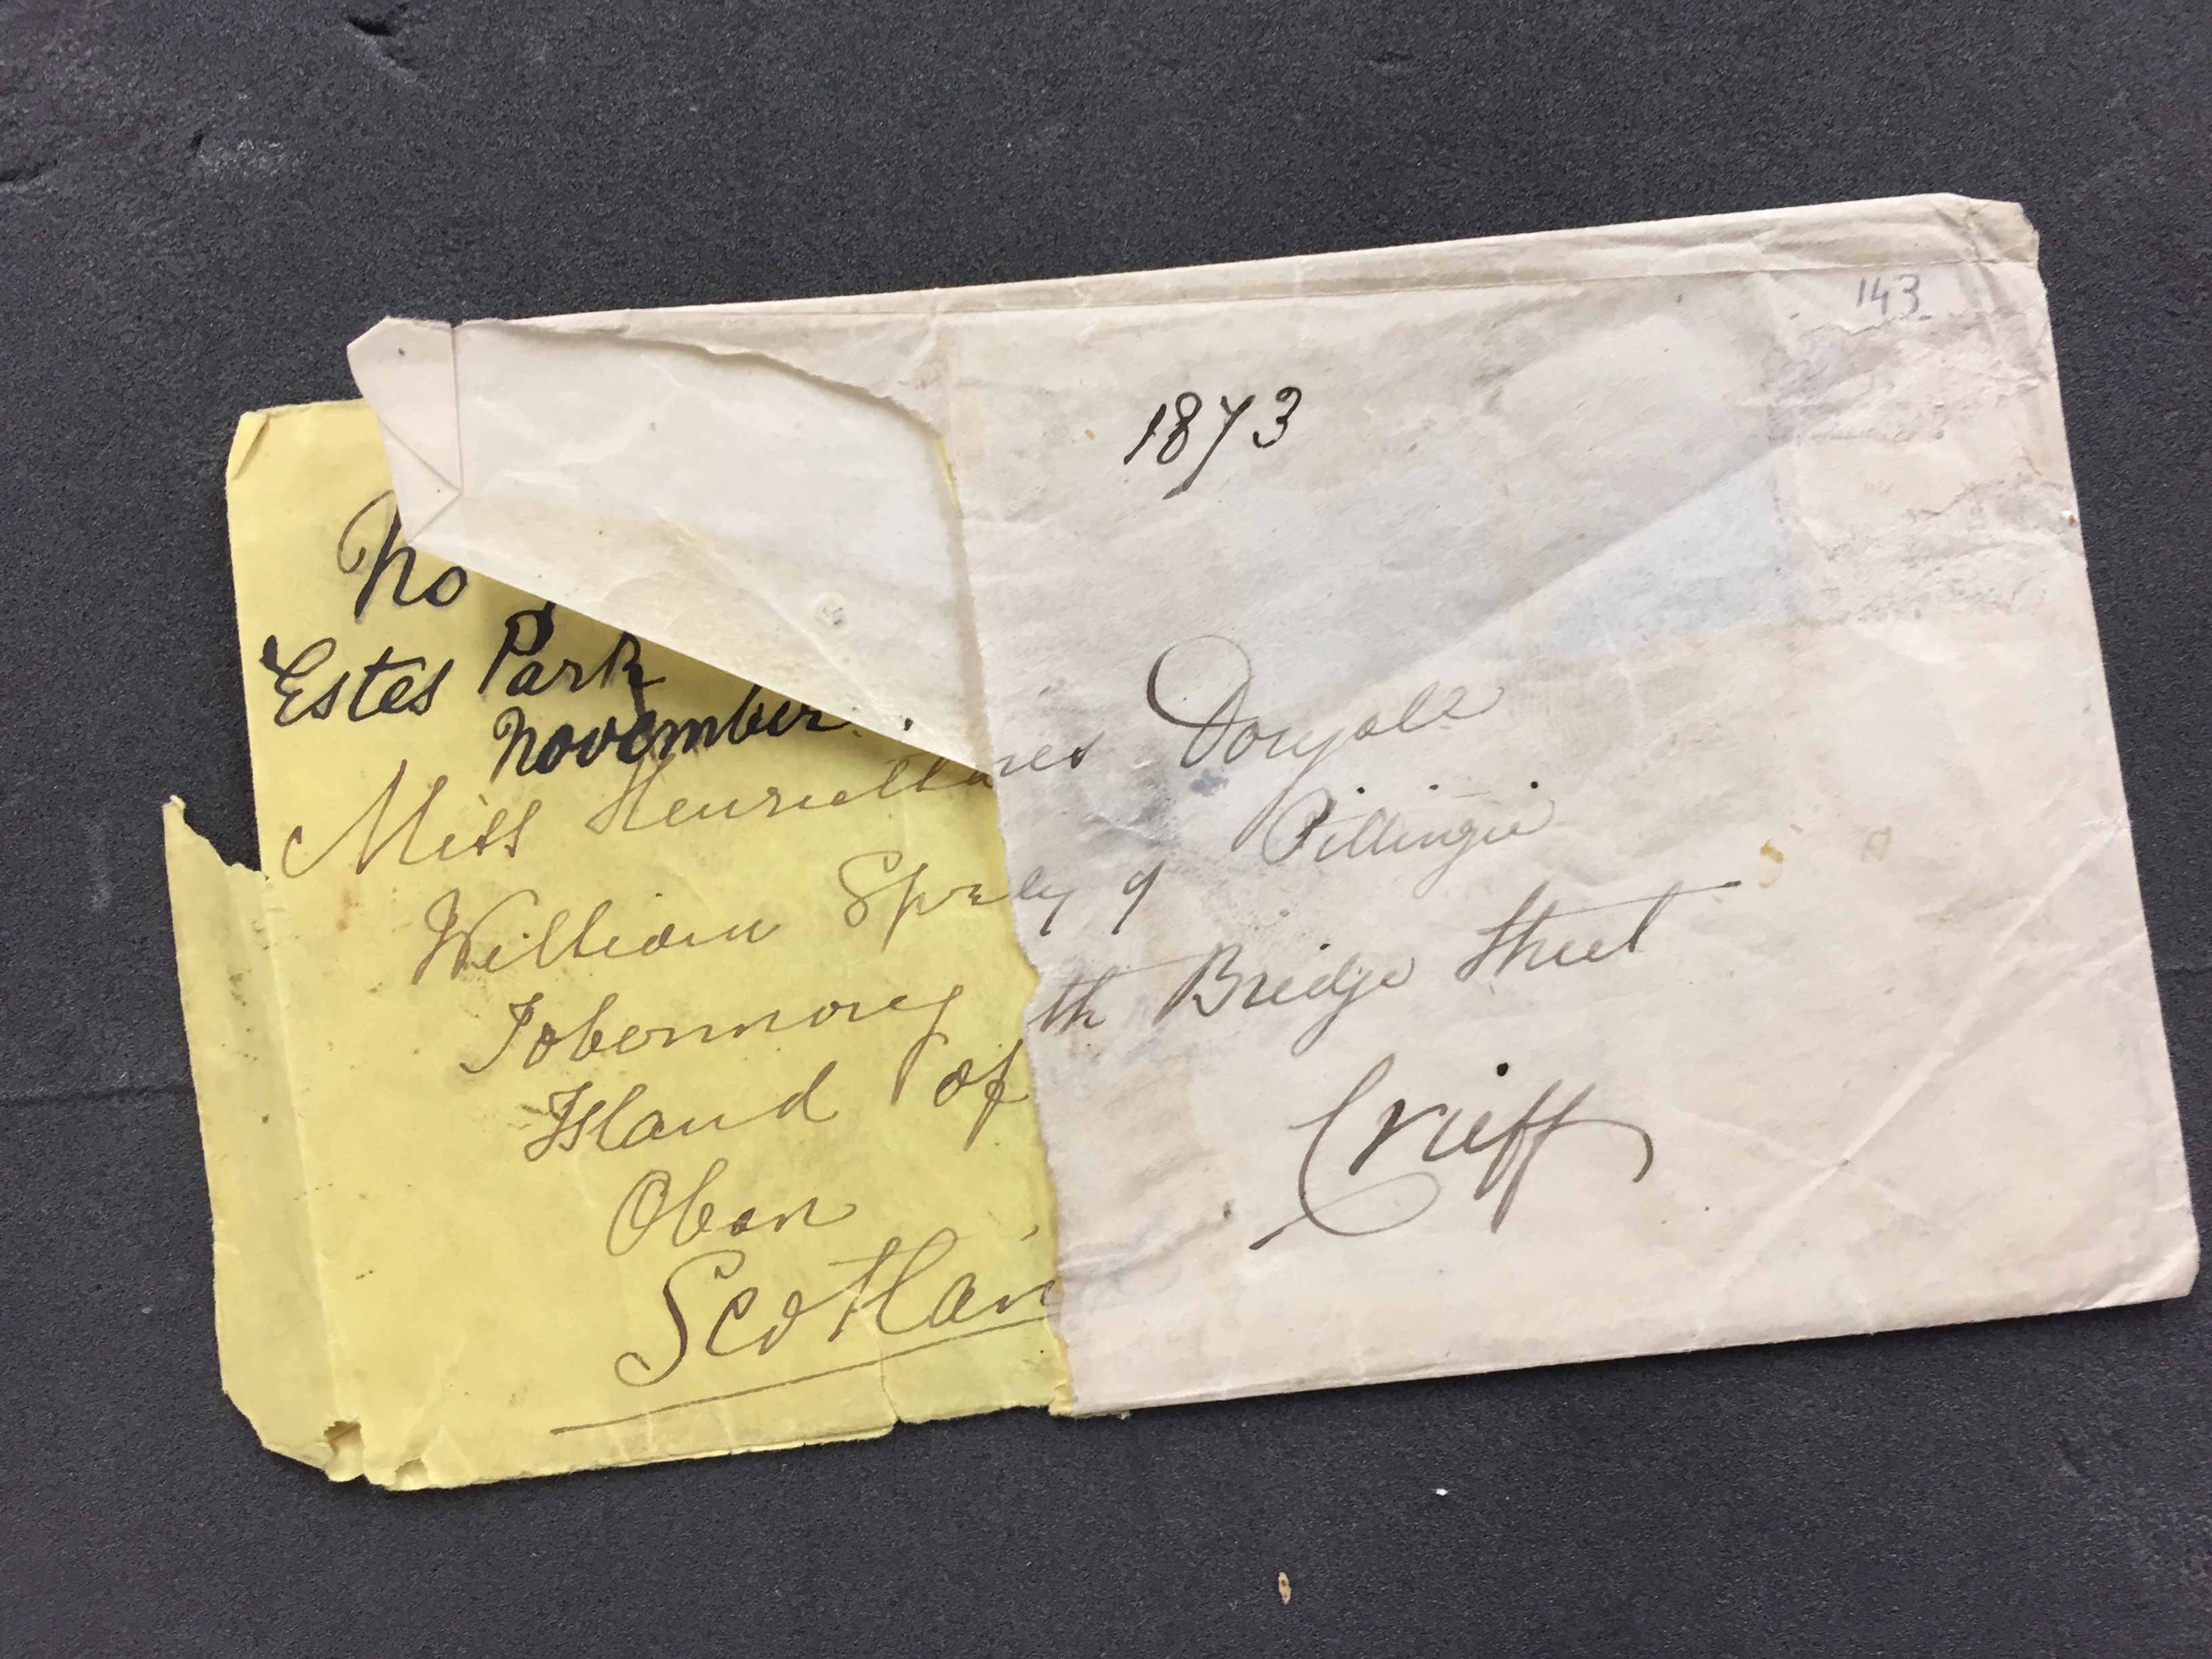 143
1873
No
Estes Park
November
Miss Henrietta
William
Tobermorey
Island of
Oban
Scotlan
Dougall
Pillingie
th Bridge Street
Crieff